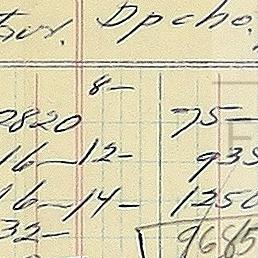 Dpcho.
8-
2820 75-
16-12- 935
16-14- 1250
32- 9685